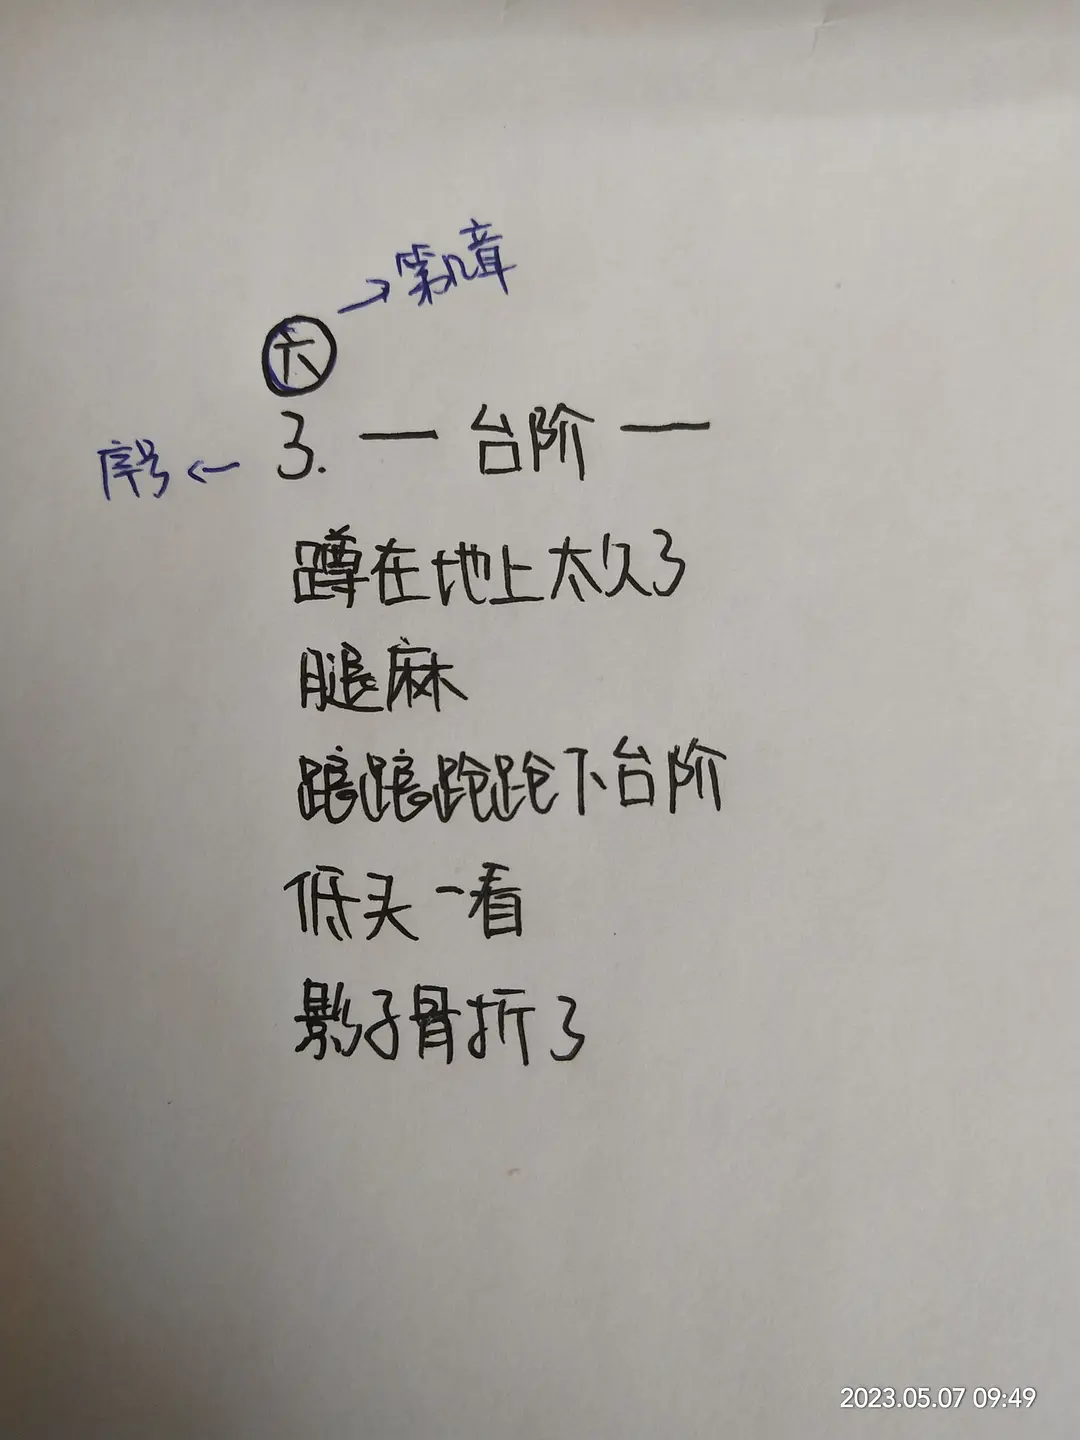 →第几章
六
序号← 3. — 台阶 —
蹲在地上太久了
腿麻
踉踉跄跄下台阶
低头一看
影子骨折了
2023.05.07 09:49